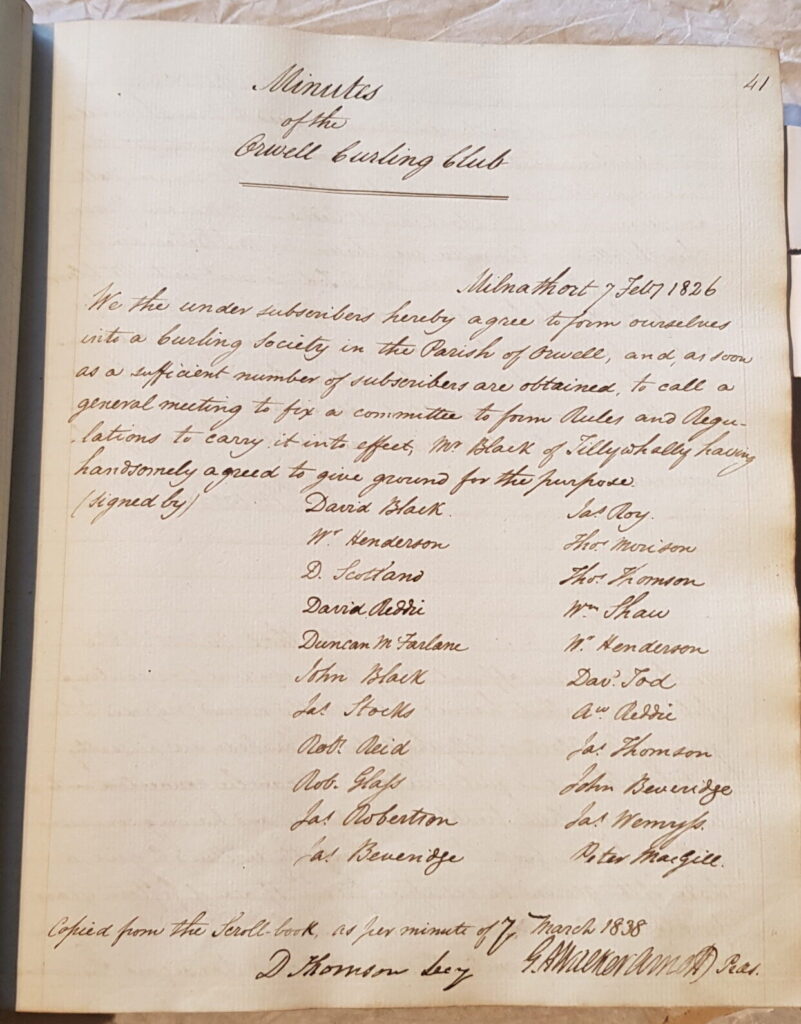 41
Minutes
of the
Orwell Curling Club
Milnathort 7 Feby 1826
We the under subscribers hereby agree to form ourselves
into a Curling Society in the Parish of Orwell, and, as soon
as a sufficient number of subscribers are obtained, to call a
general meeting to fix a committee to form Rules and Regu-
-lations to carry it into effect, Mr Black of Tillywhally having
handsomely agreed to give ground for the purpose.
(signed by) David Black. Jas Roy.
Wm Henderson Thos Morison
D. Scotland Thos Thomson
David Reddie Wm Shaw
Duncan McFarlane Wm Henderson
John Black Davd Tod
Jas Stocks Aw Reddie
Robt Reid Jas Thomson
Rob. Glass John Beveridge
Jas Robertson Jas Wemyss.
Jas Beveridge Peter MacGill.
Copied from the Scroll-book, as per minute of 7 March 1838
D Thomson Secy G A Walker Arnott Præs.